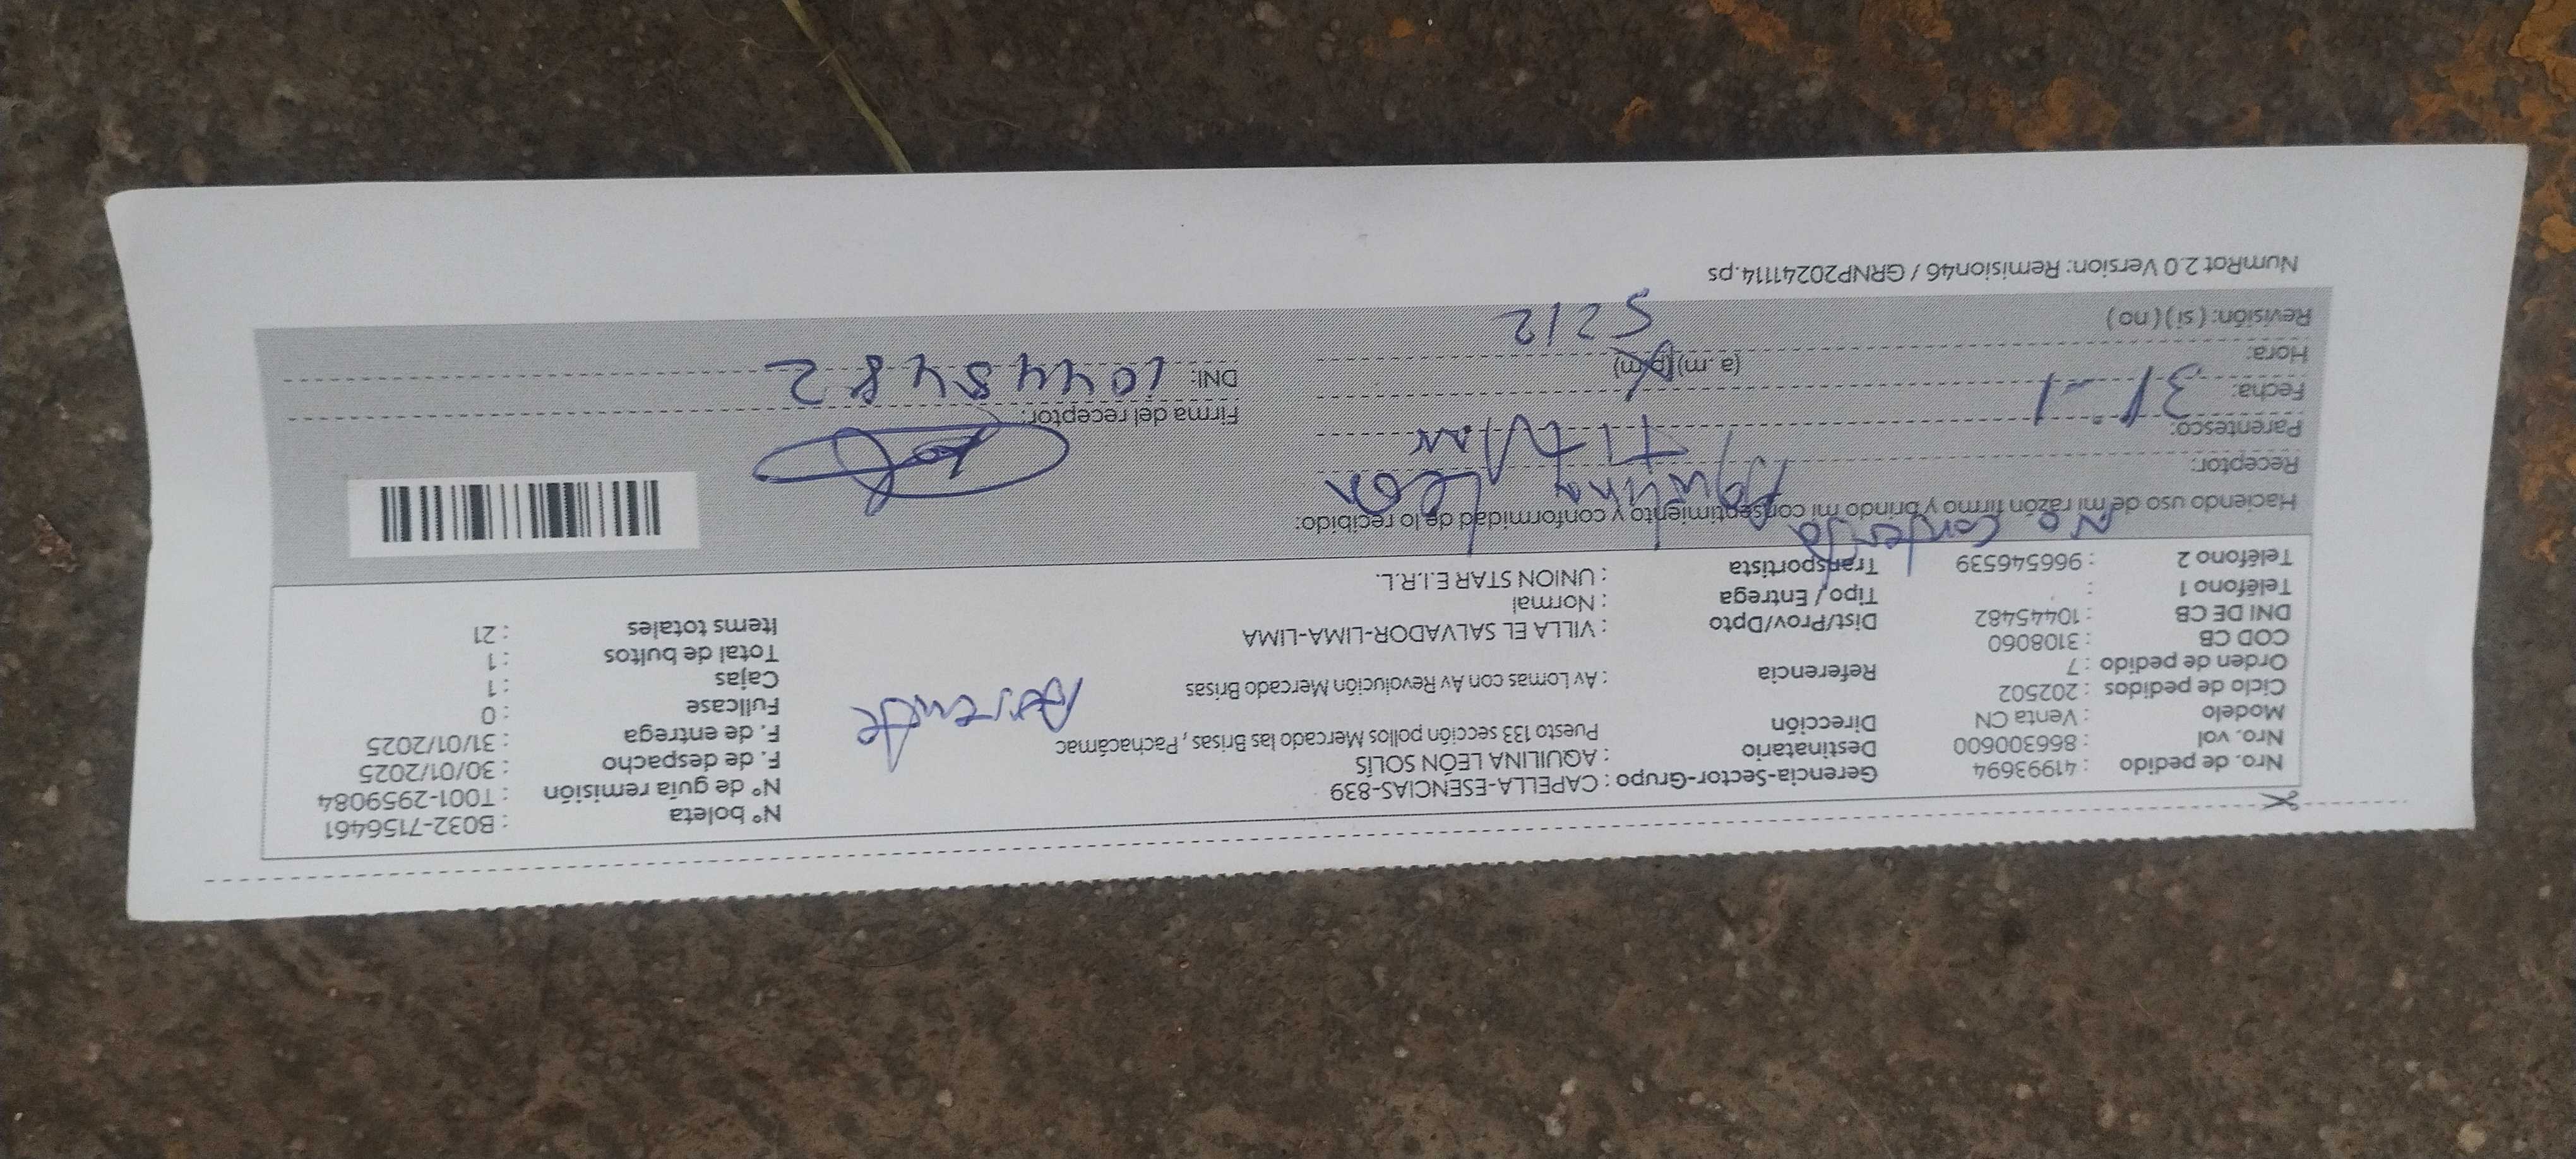 Nro. de pedido : 41993694 Gerencia-Sector-Grupo : CAPELLA-ESENCIAS-839 N° boleta : B032-7156461
Nro. vol : 866300600 Destinatario : AQUILINA LEÓN SOLÍS N° de guía remisión : T001-2959084
Modelo : Venta CN Dirección Puesto 133 sección pollos Mercado las Brisas , Pachacámac F. de despacho : 30/01/2025
Ciclo de pedidos : 202502 F. de entrega : 31/01/2025
Orden de pedido : 7 Referencia : Av Lomas con Av Revolución Mercado Brisas Fullcase : 0
COD CB : 3108060 Cajas : 1
DNI DE CB : 10445482 Dist/Prov/Dpto : VILLA EL SALVADOR-LIMA-LIMA Total de bultos : 1
Teléfono 1 : Tipo / Entrega : Normal Items totales : 21
Teléfono 2 : 966546539 Transportista : UNION STAR E.I.R.L.
No contesta
Haciendo uso de mi razón firmo y brindo mi consentimiento y conformidad de lo recibido:
Receptor: Aquilina León
Parentesco: Titular
Fecha: 31-1 Firma del receptor:
Hora: (a .m) (p.m) DNI: 10445482
Revisión: ( si ) ( no ) 5212
NumRot 2.0 Version: Remision46 / GRNP20241114.ps